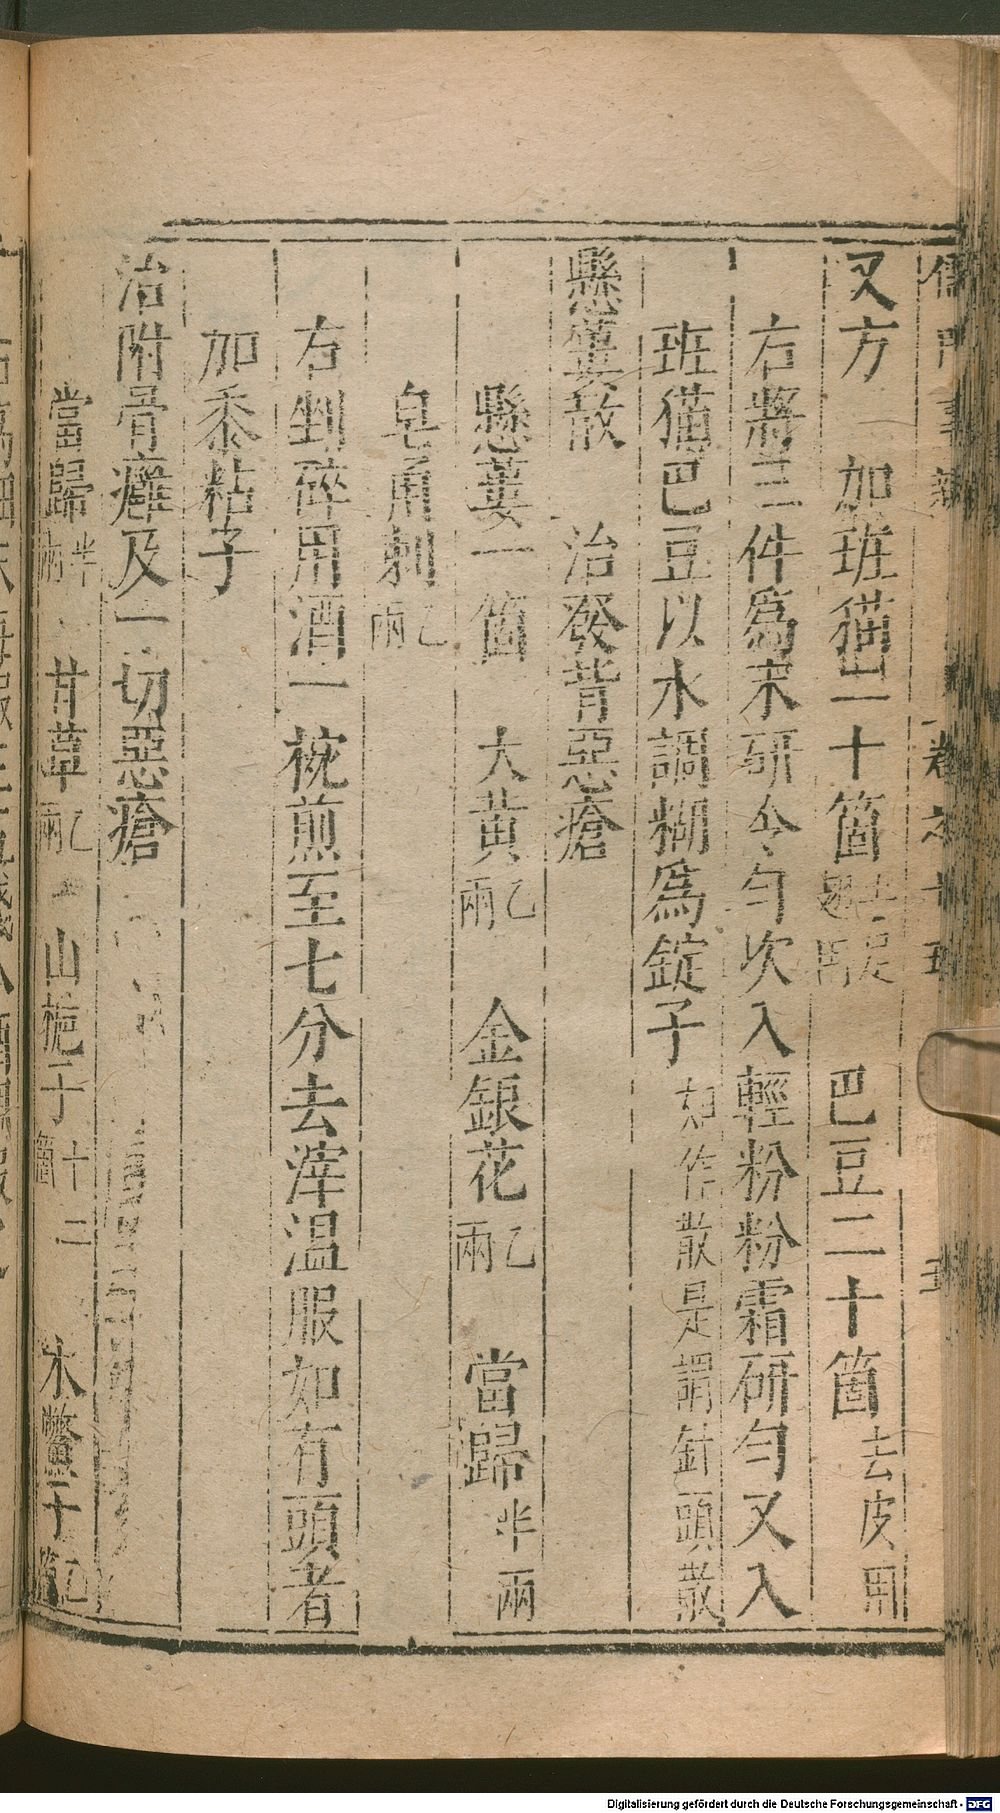 儒門事親 卷之十五 五
又方 加班猫二十箇去足翅用 巴豆二十箇去皮用
右將三件爲末研令勻次入輕粉粉霜研勻又入
班猫巴豆以水調糊爲錠子如作散是謂針頭散
懸蔞散 治發背惡瘡
懸蔞一箇 大黃乙兩 金銀花乙兩 當歸半兩
皂角刺乙兩
右剉碎用酒一椀煎至七分去滓温服如有頭者
加黍粘子
治附骨癰及一切惡瘡
當歸半兩 甘草乙兩 山梔子十二箇 木鱉子乙箇
Digitalisierung gefördert durch die Deutsche Forschungsgemeinschaft - DFG